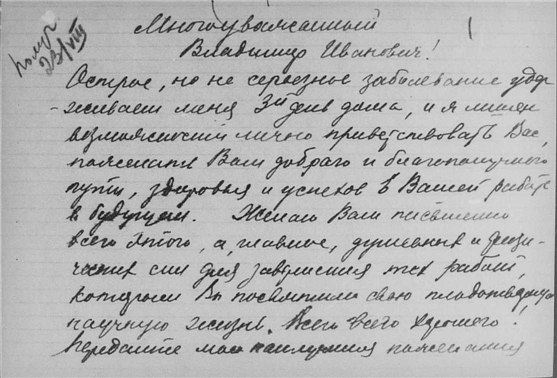 Многоуважаемый
Владимир Иванович!
получ
23/VIII
Острое, но не серьезное заболевание удер
-живает меня 3й день дома, и я лишен
возможности лично приветствовать Вас,
пожелать Вам добраго и благополучного
пути, здоровья и успехов в Вашей работе
в будущем. Желаю Вам письменно
всего этого, а, главное, душевных и физи-
ческих сил для завершения тех работ,
которым Вы посвятили свою плодотворную
научную жизнь. Всего всего хорошего!
Передайте мои наилучшия пожелания